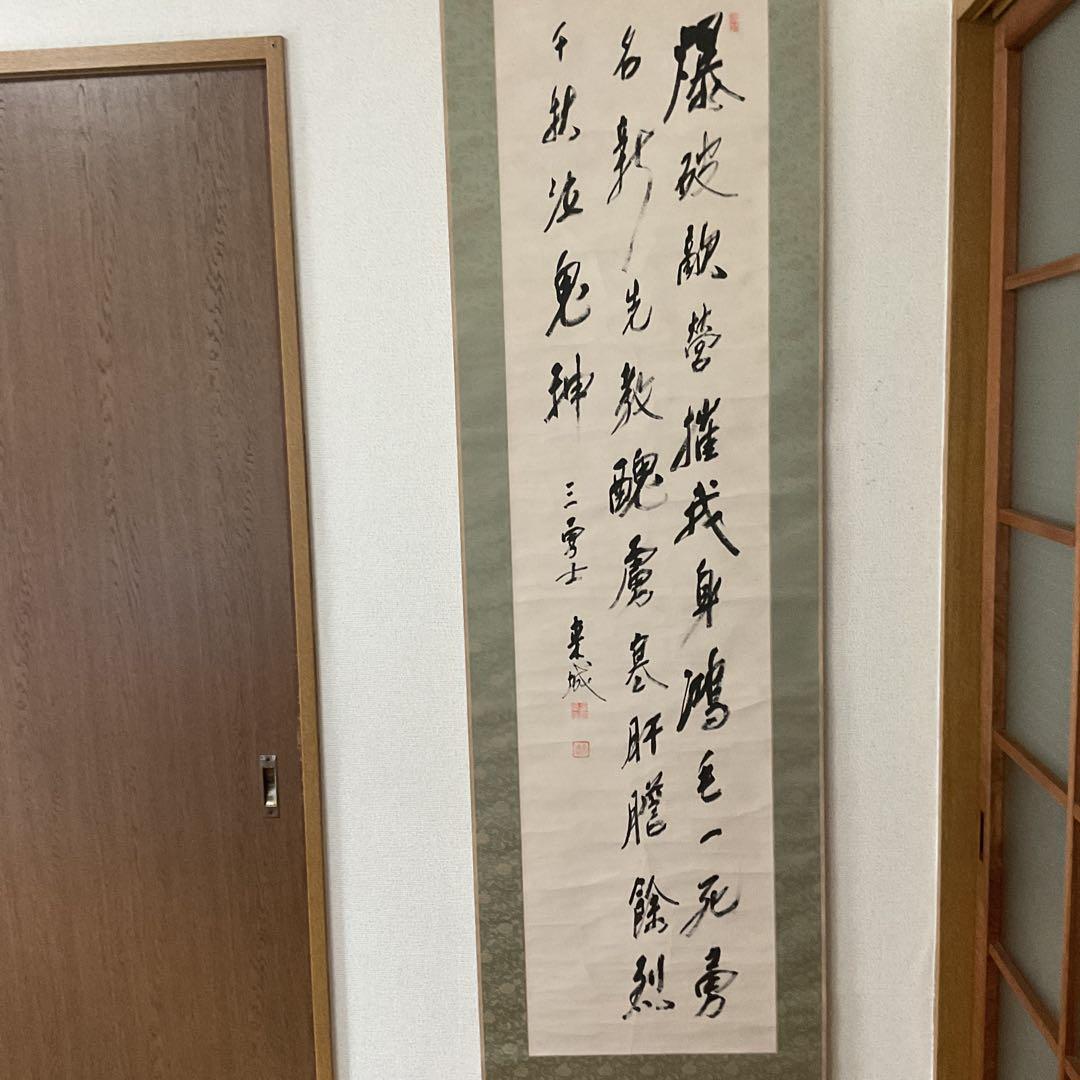 爆破敵営摧我身鴻毛一死勇
名新先教醜虜寒肝膽餘烈
千秋泣鬼神
三勇士 栗城